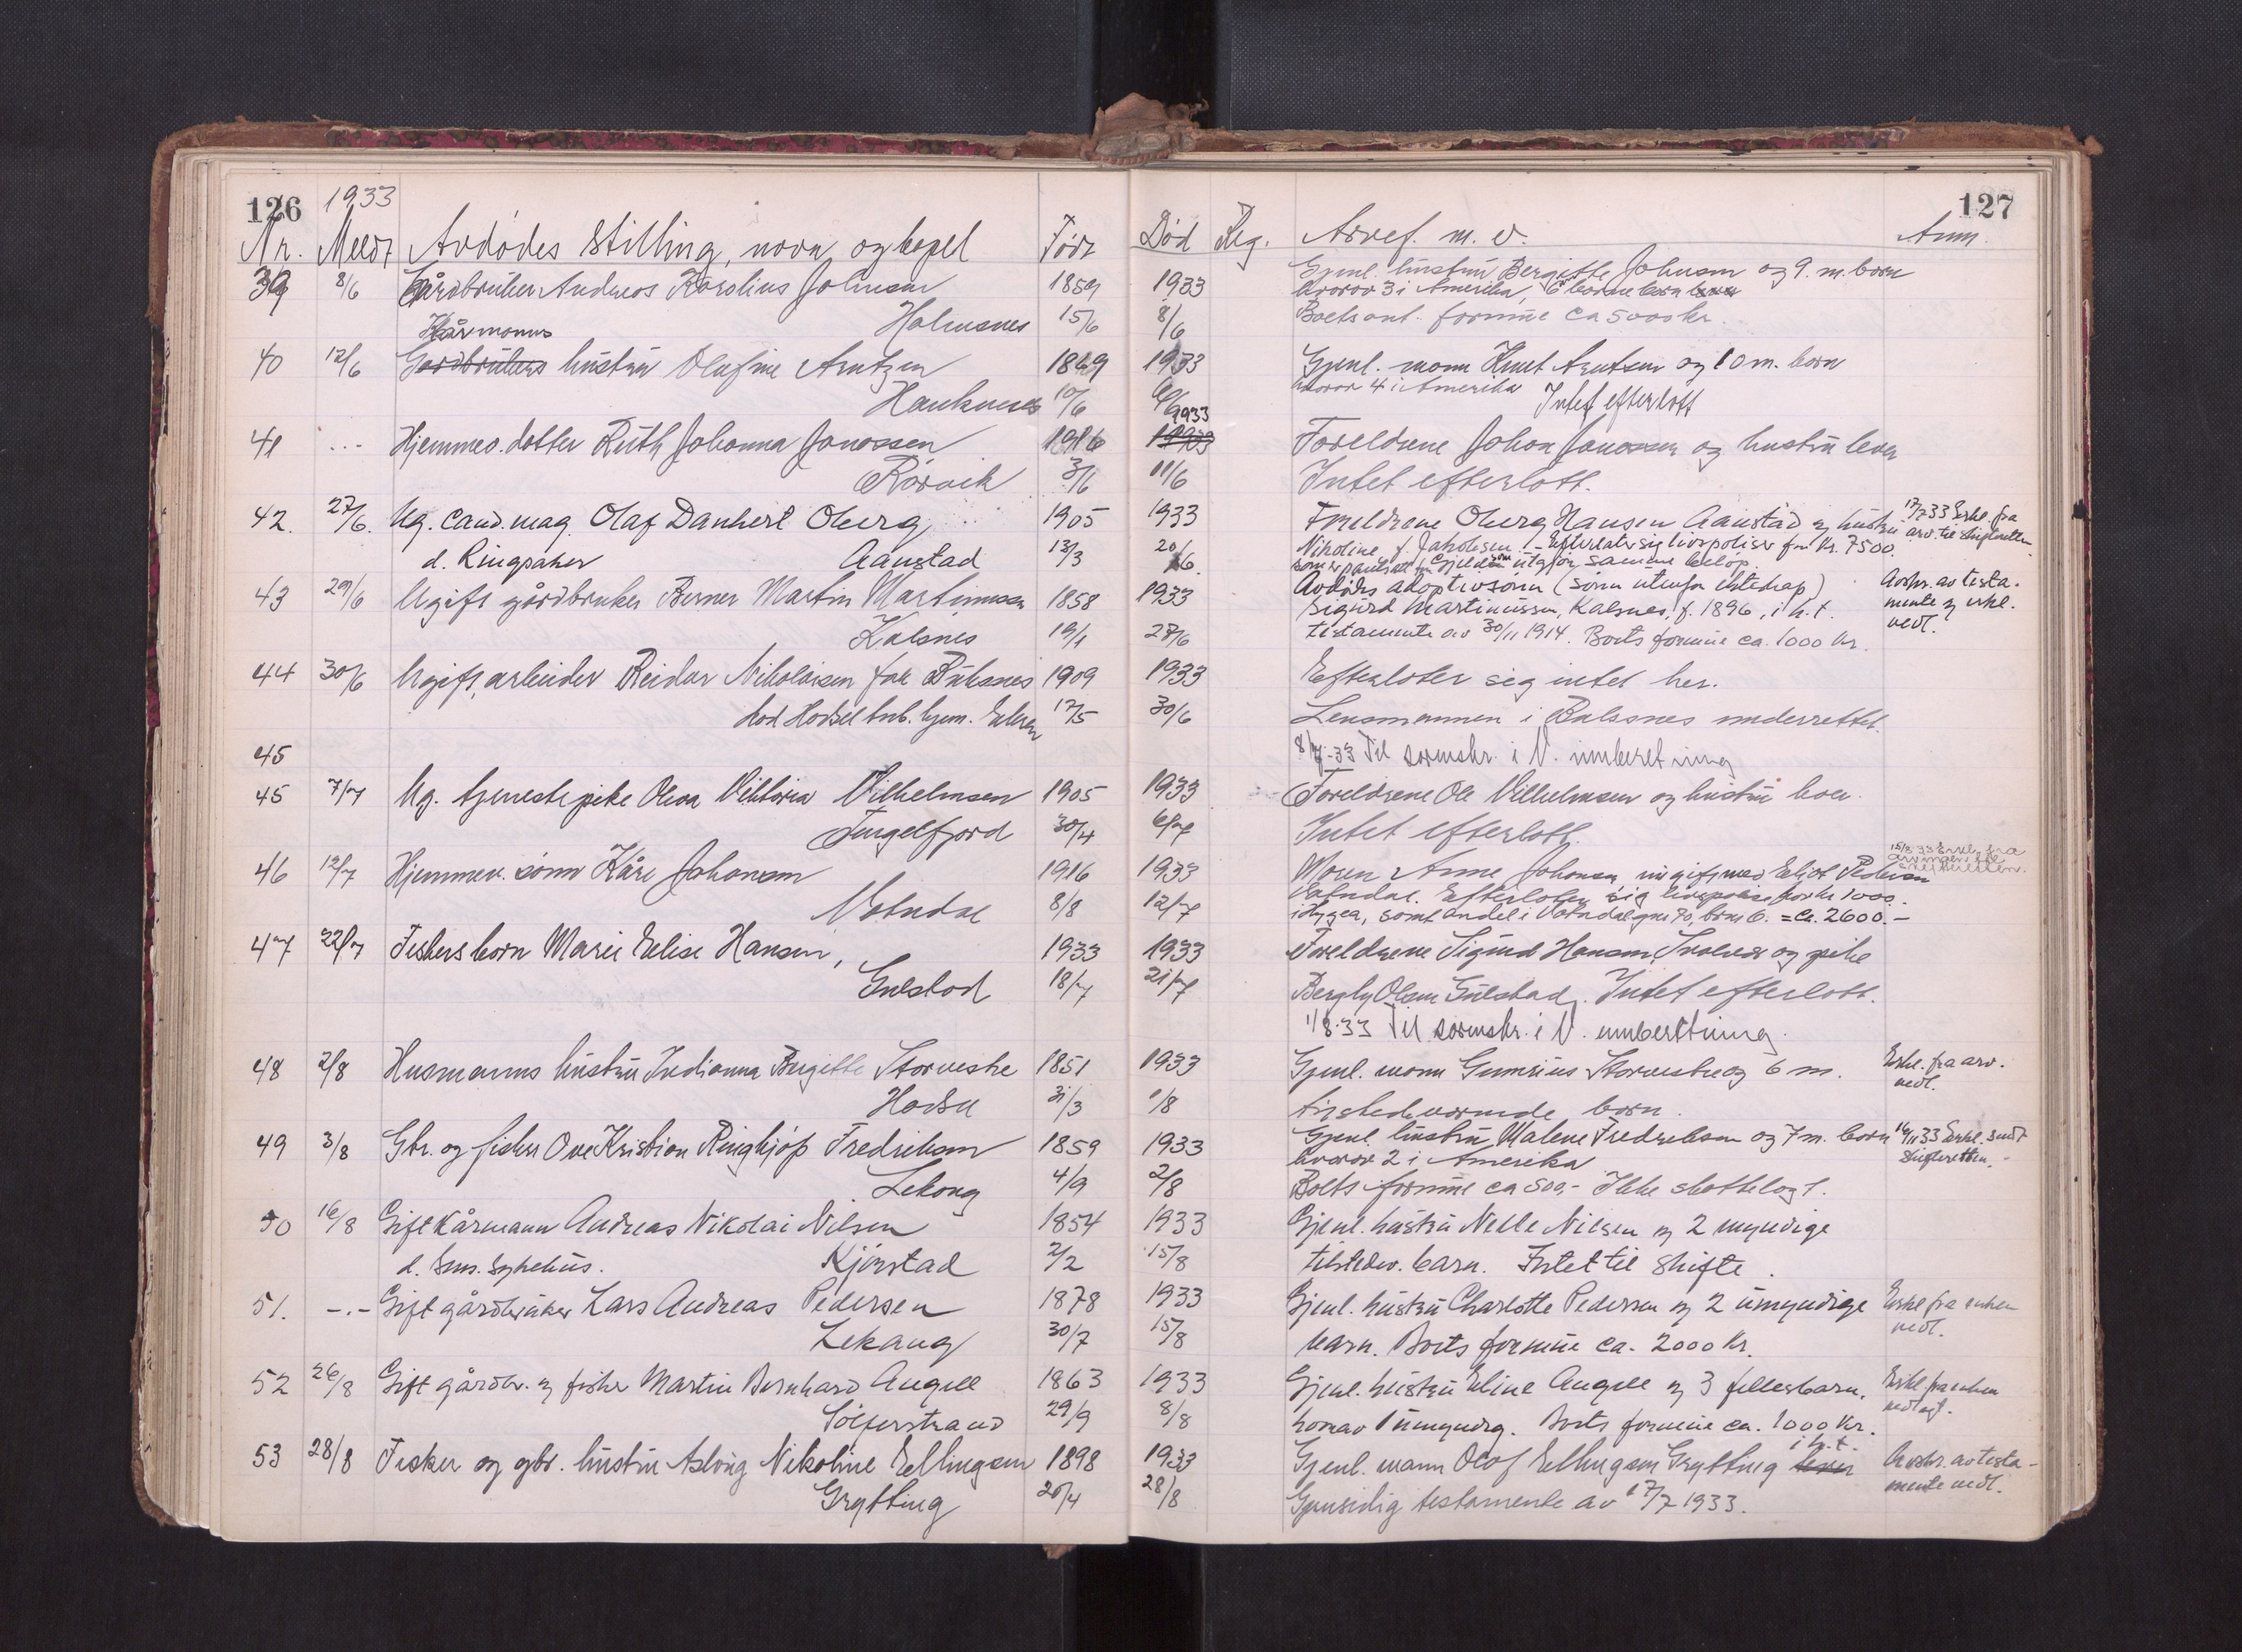 126 1933
Nr. Meldt Avdødes stilling, navn og bopel Født Død Reg. Arvef. m. v. Anm.
127
39 8/6 Gårdbruker Andreas Karolius Johnsen 1859 1933 Gjenl. hustru Bergitte Johnsen og 9 m. born
hvorav 3 i Amerika,
Holmsnes 15/6 8/6 Boets ant. formue ca 5000 kr.
Kårmanns
40 12/6 Gårdbrukers hustru Olufine Arntzen 1869 1933 Gjenl. mann Knut Arntsen og 10 m. born
hvorav 4 i Amerika Intet efterlatt
Hauknes 10/6 6/6
1933
41 - - - Hjemmev. datter Ruth Johanna Jonassen 1916 1933 Foreldrene Johan Jonassen og hustru lever
Rørvik 3/6 11/6 Intet efterlatt.
42. 27/6. Ug. cand. mag. Olaf Danhert Oberg 1905 1933 Foreldrene Oberg Hansen Aanstad og hustru
Nikoline, f. Jakobsen. - Efterlater sig livspoliser for Kr. 7500.
d. Ringsaker Aanstad 13/3 20/6 som er pantsatt for Gjeld som utgjør samme beløp.
17/7 33 Erkl. fra
arv. til skifteretten
43 29/6 Ugift gårdbruker Berner Martin Martinussen 1858 1933 Avdødes adoptivsønn (sønn utenfor ekteskap)
Sigurd Martinussen, Kalsnes, f. 1896, i h. t.
Kalsnes 19/1 27/6 testamente av 30/11 1914. Boets formue ca. 1000 kr.
Avskr. av testa-
mente og erkl.
vedl.
44 30/6 Ugift arbeider Reidar Nikolaisen fra 1909 1933 Efterlater sig intet her.
hos Hadsel tub. hjem. 12/5 30/6 Lensmannen i Balsnes underrettet.
45 8/7-33 Til sorenskr. i V. innberetning
45 7/7 Ug. tjenestepike Olea Viktoria Vilhelmsen 1905 1933 Foreldrene Ole Vilhelmsen og hustru lever.
Fingelfjord 30/4 6/7 Intet efterlatt.
46 12/7 Hjemmev. sønn Kåre Johansen 1916 1933 Moren Anne Johansen, nu gift med Eliot Pedersen
Vatndal. Efterlater sig livspolise for kr 1000.
Vatndal 8/8 12/7 i Hygea, samt andel i Vatndal gnr 70, brnr 6. = ca. 2600. -
15/8 33 Erkl. fra
arvinger til
skifteretten.
47 22/7 Fiskers born Marie Elise Hansen, 1933 1933 Foreldrene Sigurd Hansen, Svolvær og pike
Gulstad 18/7 21/7 Bergly Olsen Gulstad. Intet efterlatt.
1/8-33 Til sorenskr. i V. innberetning.
48 2/8 Husmanns hustru Indianna Birgitte Storveske 1851 1933 Gjenl. mann Gunerius Storveske og 6 m.
Hadsel 31/3 1/8 tilstedeværende born.
Erkl. fra arv.
vedl.
49 3/8 Gbr. og fisker Ove Kristian Ringkjøp Fredriksen 1859 1933 Gjenl. hustru Malene Fredriksen og 7 m. born
hvorav 2 i Amerika
Lekang 4/9 2/8 Boets formue ca 500,- Ikke skattelagt.
16/11 33 Erkl. sendt
skifteretten. -
50 16/8 Gift kårmann Andreas Nikolai Nilsen 1854 1933 Gjenl. hustru Nelle Nilsen og 2 myndige
d. Sykehus. Kjørstad 2/2 15/8 tilstedev. barn. Intet til skifte.
51. -.- Gift gårdbruker Lars Andreas Pedersen 1878 1933 Gjenl. hustru Charlotte Pedersen og 2 umyndige
Lekang 30/7 15/8 barn. Boets formue ca. 2000 Kr.
Erkl fra enken
vedl.
52 26/8 Gift gårdbr. og fisker Martin Bernhard Angell 1863 1933 Gjenl. hustru Eline Angell og 3 fellesbarn,
Sølferstrand 29/9 8/8 hvorav 1 umyndig. Boets formue ca. 1000 Kr.
Erkl fra enken
vedlagt.
53 28/8 Fisker og gbr. hustru Aslaug Nikoline Ellingsen 1898 1933 Gjenl. mann Olaf Ellingsen Grytting lever i h. t.
Grytting 20/4 28/8 Gjensidig testamente av 17/7 1933.
Avskr. av testa-
mente vedl.